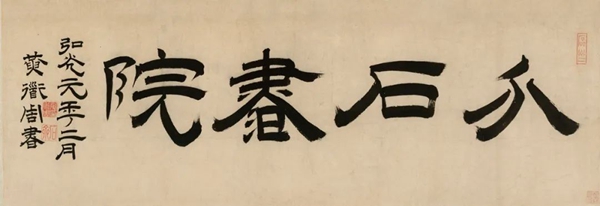 介石書院
弘光元年二月
黃道周書